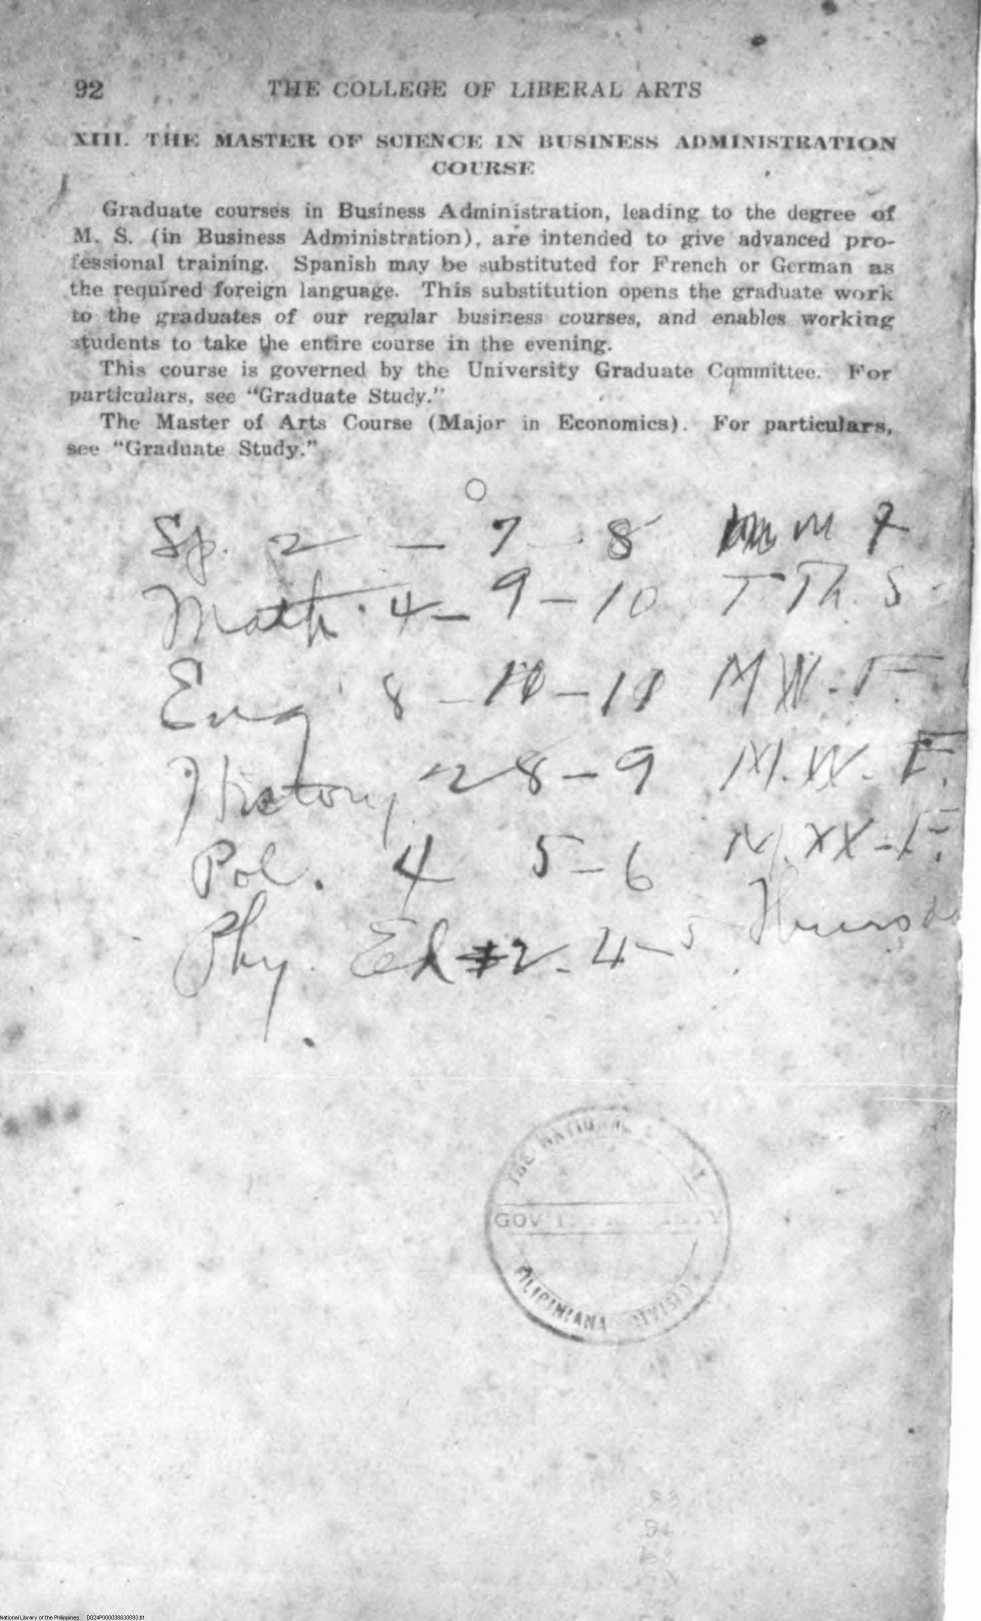 92 THE COLLEGE OF LIBERAL ARTS
XIII. THE MASTER OF SCIENCE IN BUSINESS ADMINISTRATION
COURSE
Graduate courses in Business Administration, leading to the degree of
M. S. (in Business Administration), are intended to give advanced pro-
fessional training. Spanish may be substituted for French or German as
the required foreign language. This substitution opens the graduate work
to the graduates of our regular business courses, and enables working
students to take the entire course in the evening.
This course is governed by the University Graduate Committee. For
particulars, see "Graduate Study."
The Master of Arts Course (Major in Economics). For particulars,
see "Graduate Study."
Sp. 2 — 7 - 8 M F
Math. 4 — 9 — 10 T Th. S
Eng 8 — 10 — 11 M W. F.
History 2 8 — 9 M. W. F.
Pol. 4 5 — 6 M. W - F.
Phy. Ed #2. 4 — 5
THE NATIONAL
GOV'T
FILIPINIANA DIVISION
National Library of the Philippines